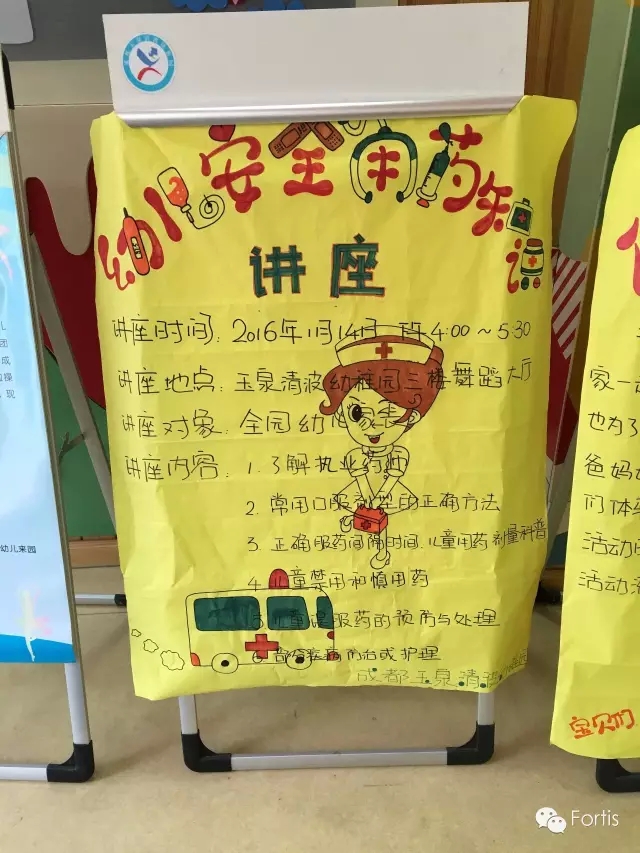 幼儿安全用药知识
讲座
讲座时间：2016年11月14日 4:00～5:30
讲座地点：玉泉清波幼稚园三楼舞蹈大厅
讲座对象：全园幼儿家长
讲座内容：1.了解执业药师
2.常用口服剂型的正确方法
3.正确服药间隔时间.儿童用药剂量科普
4.儿童禁用和慎用药
5.儿童误服药的预防与处理
6.部份疾病的治或护理
成都玉泉清波
幼儿来园
家一
也为了
爸妈
们体
活动
活动
宝贝们
Fortis